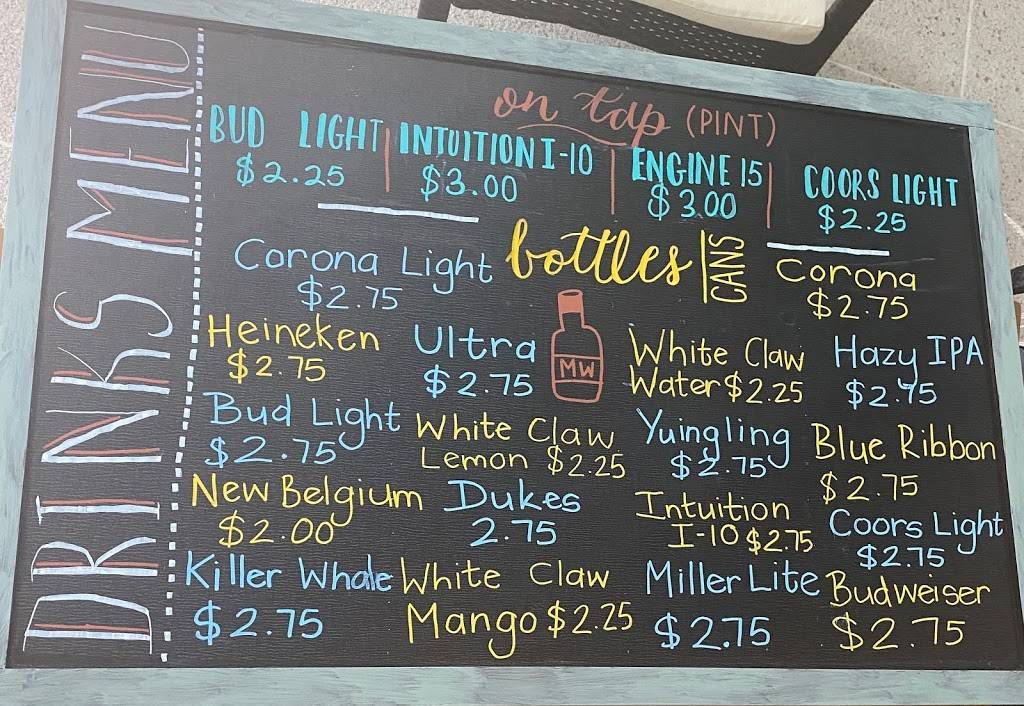 DRINKS MENU
on tap (PINT)
BUD LIGHT
$2.25
INTUITION I-10
$3.00
ENGINE 15
$3.00
COORS LIGHT
$2.25
bottles
CANS
Corona Light
$2.75
Corona
$2.75
Heineken
$2.75
Ultra
$2.75
MW
White Claw
Water $2.25
Hazy IPA
$2.75
Bud Light
$2.75
White Claw
Lemon $2.25
Yuingling
$2.75
Blue Ribbon
$2.75
New Belgium
$2.00
Dukes
2.75
Intuition
I-10 $2.75
Coors Light
$2.75
Killer Whale
$2.75
White Claw
Mango $2.25
Miller Lite
$2.75
Budweiser
$2.75